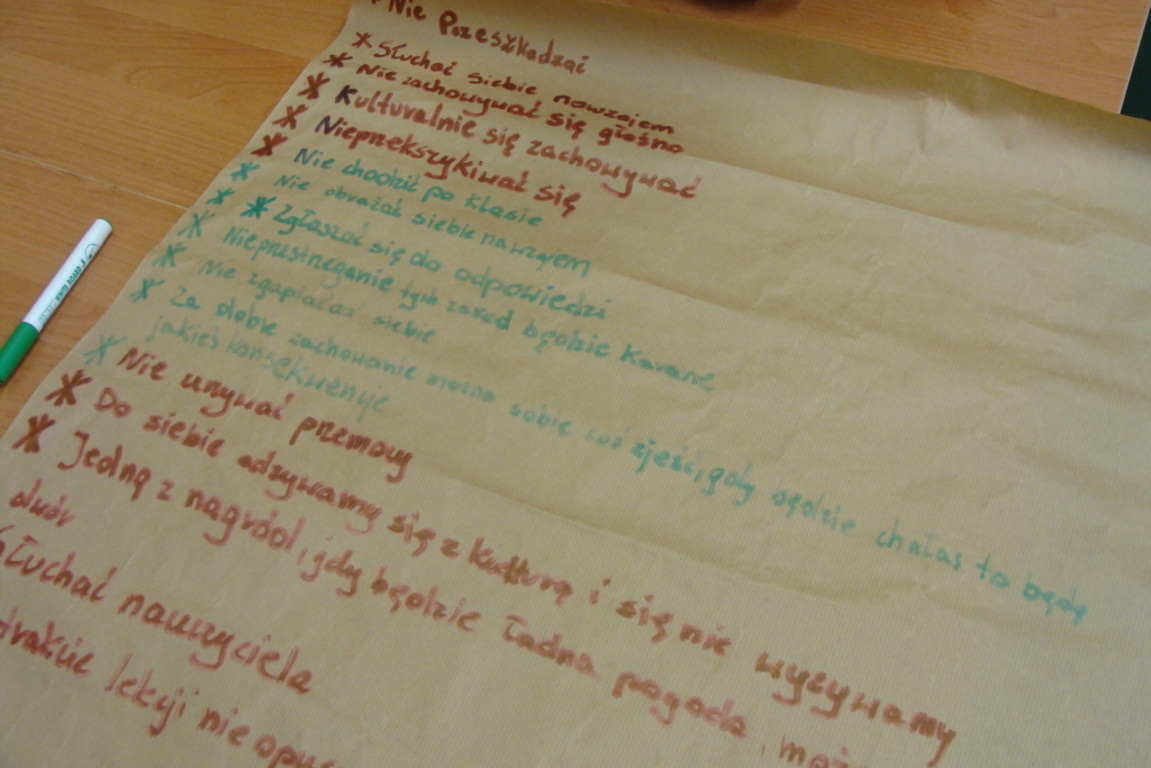 * Nie Przeszkadzać
* Słuchać siebie nawzajem
* Nie zachowywać się głośno
* Kulturalnie się zachowywać
* Nieprzekszykiwać się
* Nie chodzić po klasie
* Nie obrażać siebie nawzajem
* Zgłaszać się do odpowiedzi
* Nieprzestrzeganie tych zasad będzie karane
* Nie zgapiać od siebie
* Za dobre zachowanie można sobie coś zjeść, gdy będzie chałas to będą
jakieś konsekwencje
* Nie używać przemocy
* Do siebie odzywamy się z kulturą i się nie wyzywamy
* Jedną z nagród, gdy będzie ładna pogoda,
dwór
Słuchać nauczyciela
trakcie lekcji nie